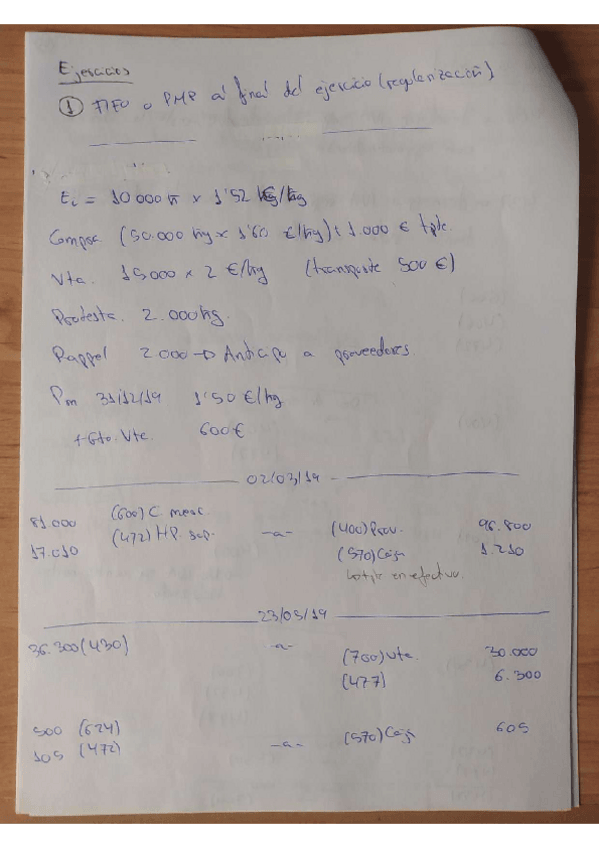 Ejercicios
① FIFO o PMP al final del ejercicio (regularización)
Ei = 10000 x 1'52 €/kg
Compra (50.000 kg x 1'60 €/kg) + 1.000 € tpte.
Vta. 15000 x 2 €/kg (transporte 500 €)
2.000 kg.
Rappel 2.000 → Anticipo a proveedores
Pm 31/12/19 1'50 €/kg
+ Gto. Vta. 600 €
02/03/19
81.000 (600) C. merc. -a- (400) Prov. 96.800
17.010 (472) HP. Sop. (570) Caja 1.210
en efectivo.
23/05/19
36.300 (430) -a- (700) Vta. 30.000
(477) 6.300
500 (624) -a- (570) Caja 605
105 (472)